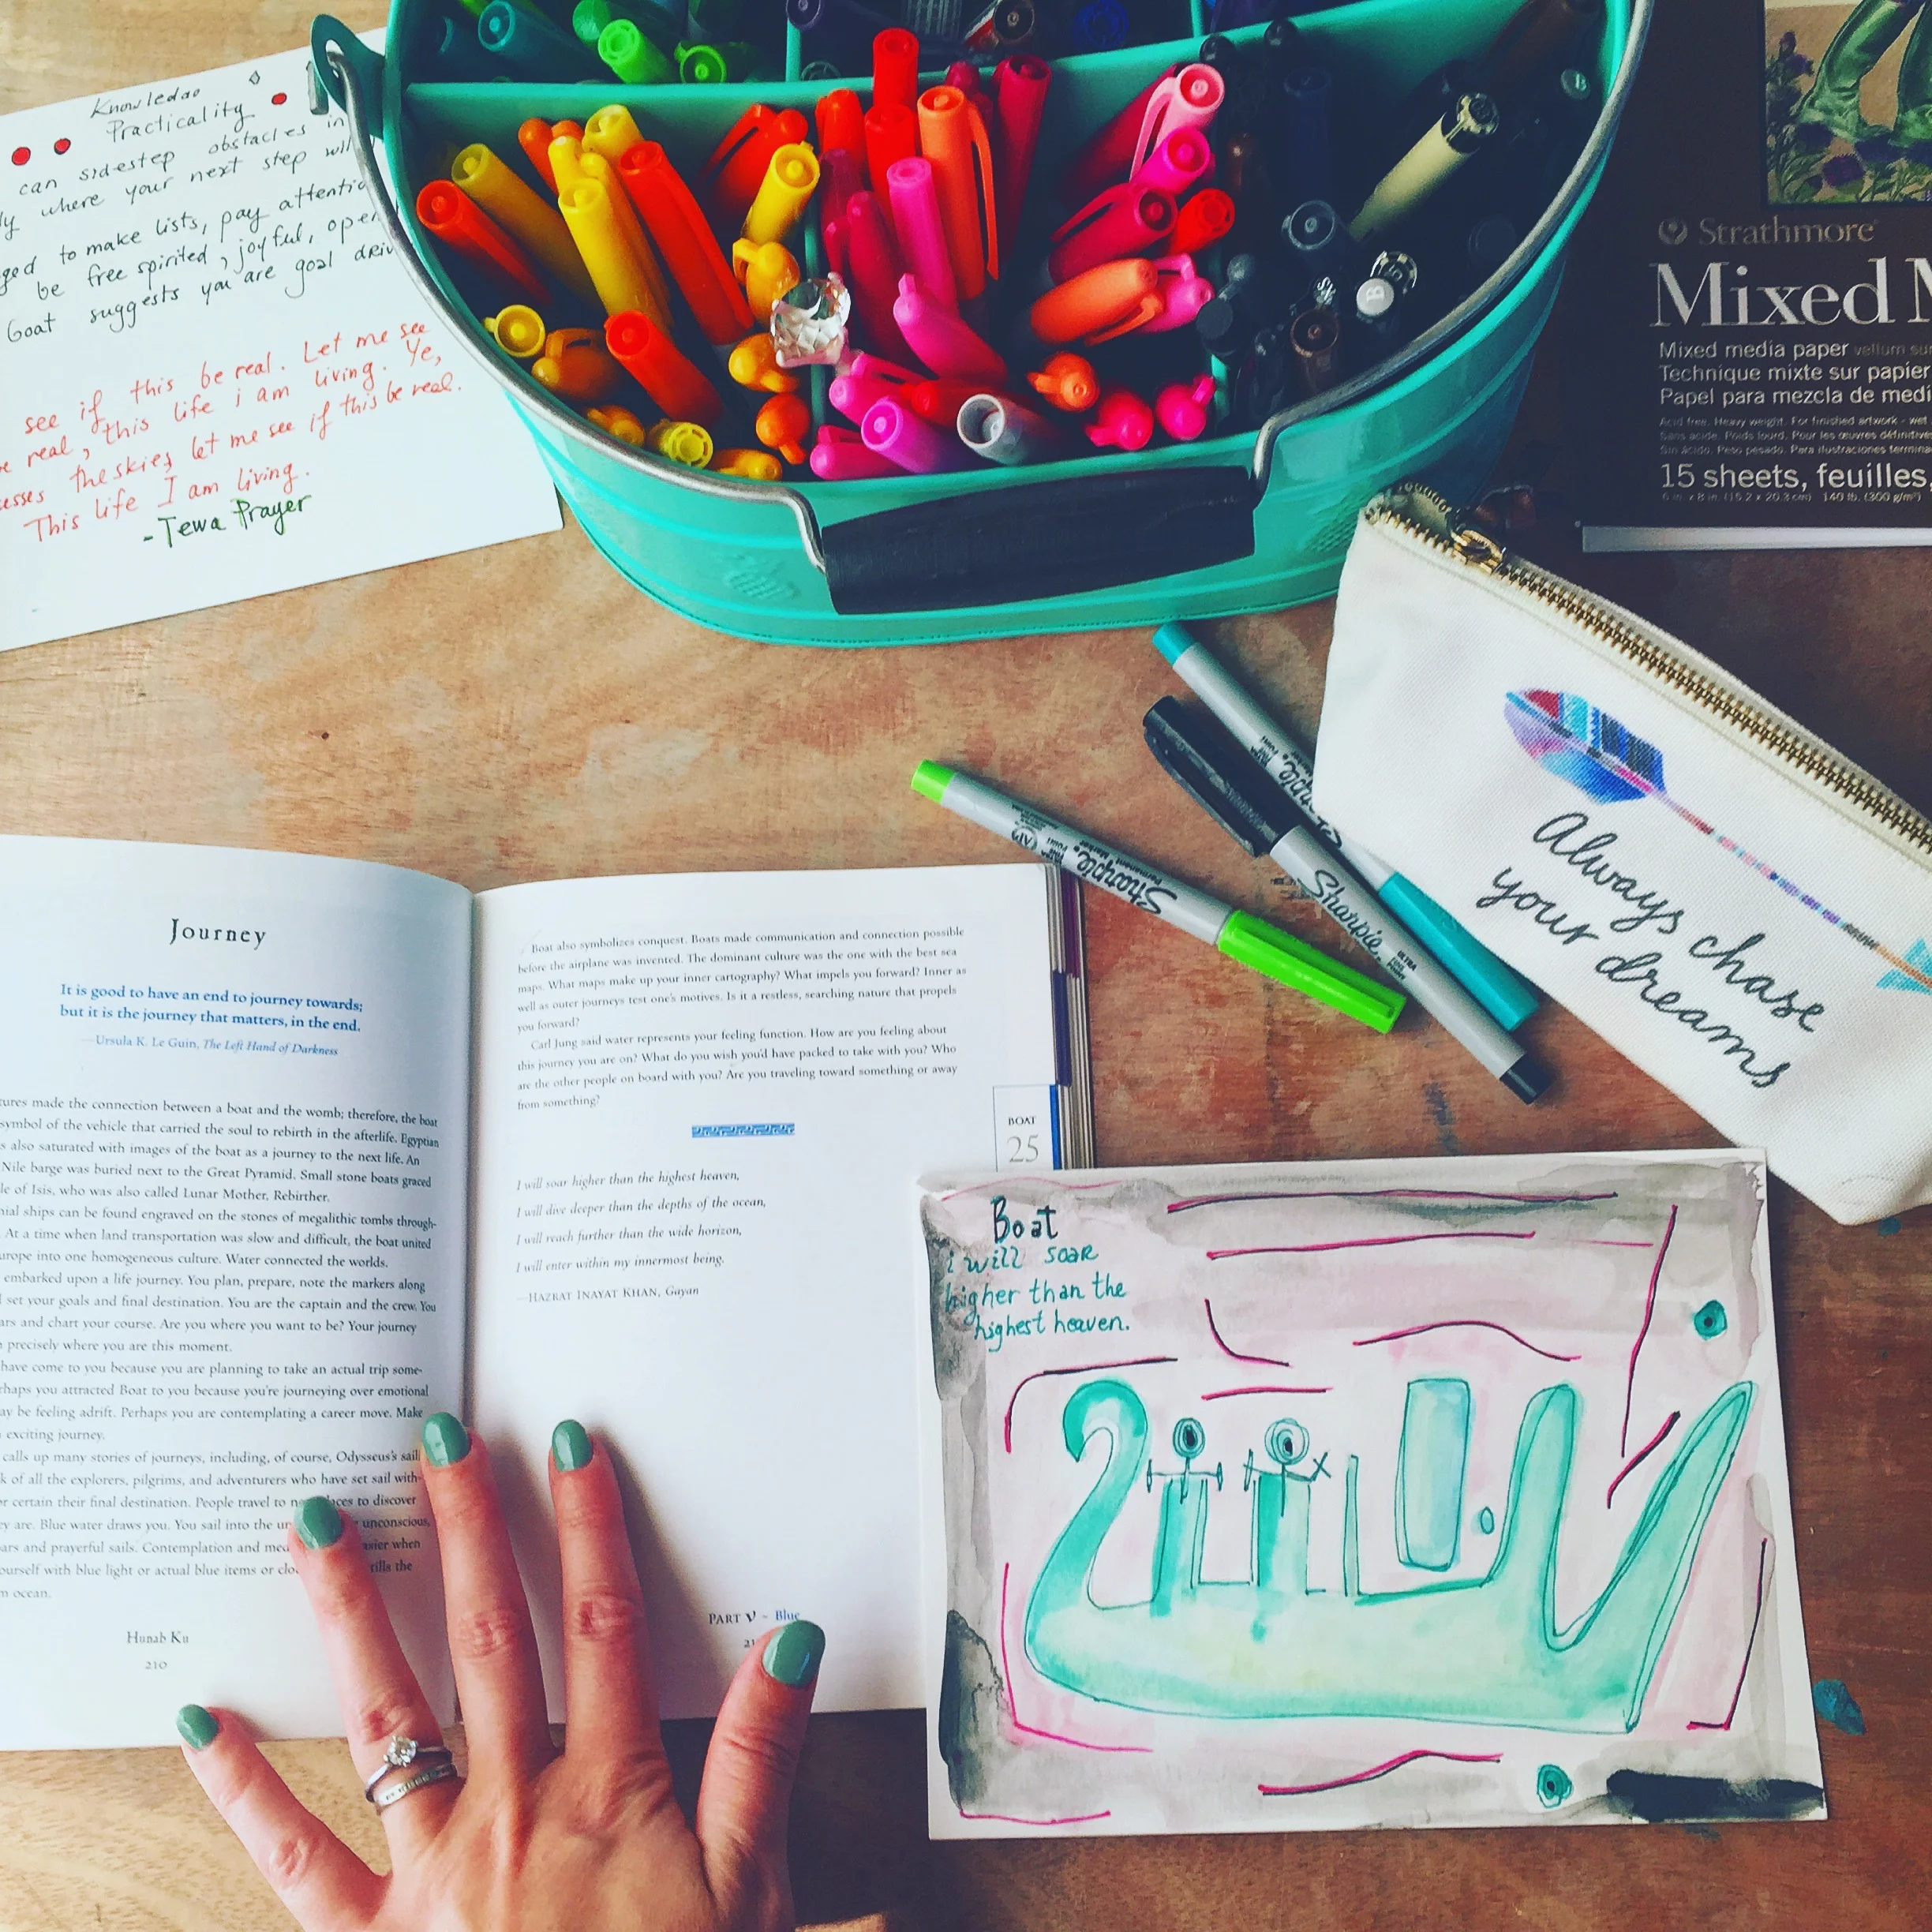 Knowledge
Practicality
can sidestep obstacles in
where your next step will
to make lists, pay attentio
be free spirited, joyful, open
Goat suggests you are goal driv
see if this be real. Let me see
real, this life i am living. Ye,
the skies let me see if this be real.
This life I am living.
-Tewa Prayer
Strathmore
Mixed M
Mixed media paper vellum sur
Technique mixte sur papier
Papel para mezcla de medi
Acid free. Heavy weight. For finished artwork - wet
Sans acide. Poids lourd. Pour les œuvres définitives
Sin ácido. Peso pesado. Para ilustraciones termina
15 sheets, feuilles,
6 in. x 8 in. (15.2 x 20.3 cm) 140 lb. (300 g/m²)
Always chase
your dreams
Sharpie.
Permanent Marker
Sharpie.
ULTRA
FINE
POINT
Sharpie
Journey
It is good to have an end to journey towards;
but it is the journey that matters, in the end.
—Ursula K. Le Guin, The Left Hand of Darkness
tures made the connection between a boat and the womb; therefore, the boat
symbol of the vehicle that carried the soul to rebirth in the afterlife. Egyptian
s also saturated with images of the boat as a journey to the next life. An
Nile barge was buried next to the Great Pyramid. Small stone boats graced
le of Isis, who was also called Lunar Mother, Rebirther.
nial ships can be found engraved on the stones of megalithic tombs through-
At a time when land transportation was slow and difficult, the boat united
urope into one homogeneous culture. Water connected the worlds.
embarked upon a life journey. You plan, prepare, note the markers along
set your goals and final destination. You are the captain and the crew. You
ars and chart your course. Are you where you want to be? Your journey
precisely where you are this moment.
have come to you because you are planning to take an actual trip some-
rhaps you attracted Boat to you because you're journeying over emotional
ay be feeling adrift. Perhaps you are contemplating a career move. Make
exciting journey.
calls up many stories of journeys, including, of course, Odysseus's sail
k of all the explorers, pilgrims, and adventurers who have set sail with-
r certain their final destination. People travel to n laces to discover
ey are. Blue water draws you. You sail into the un unconscious,
ars and prayerful sails. Contemplation and med asier when
ourself with blue light or actual blue items or clo rills the
n ocean.
Hunab Ku
210
Boat also symbolizes conquest. Boats made communication and connection possible
before the airplane was invented. The dominant culture was the one with the best sea
maps. What maps make up your inner cartography? What impels you forward? Inner as
well as outer journeys test one's motives. Is it a restless, searching nature that propels
you forward?
Carl Jung said water represents your feeling function. How are you feeling about
this journey you are on? What do you wish you'd have packed to take with you? Who
are the other people on board with you? Are you traveling toward something or away
from something?
BOAT
25
I will soar higher than the highest heaven,
I will dive deeper than the depths of the ocean,
I will reach further than the wide horizon,
I will enter within my innermost being.
—HAZRAT INAYAT KHAN, Gayan
PART V ~ Blue
21
Boat
i will soar
higher than the
highest heaven.